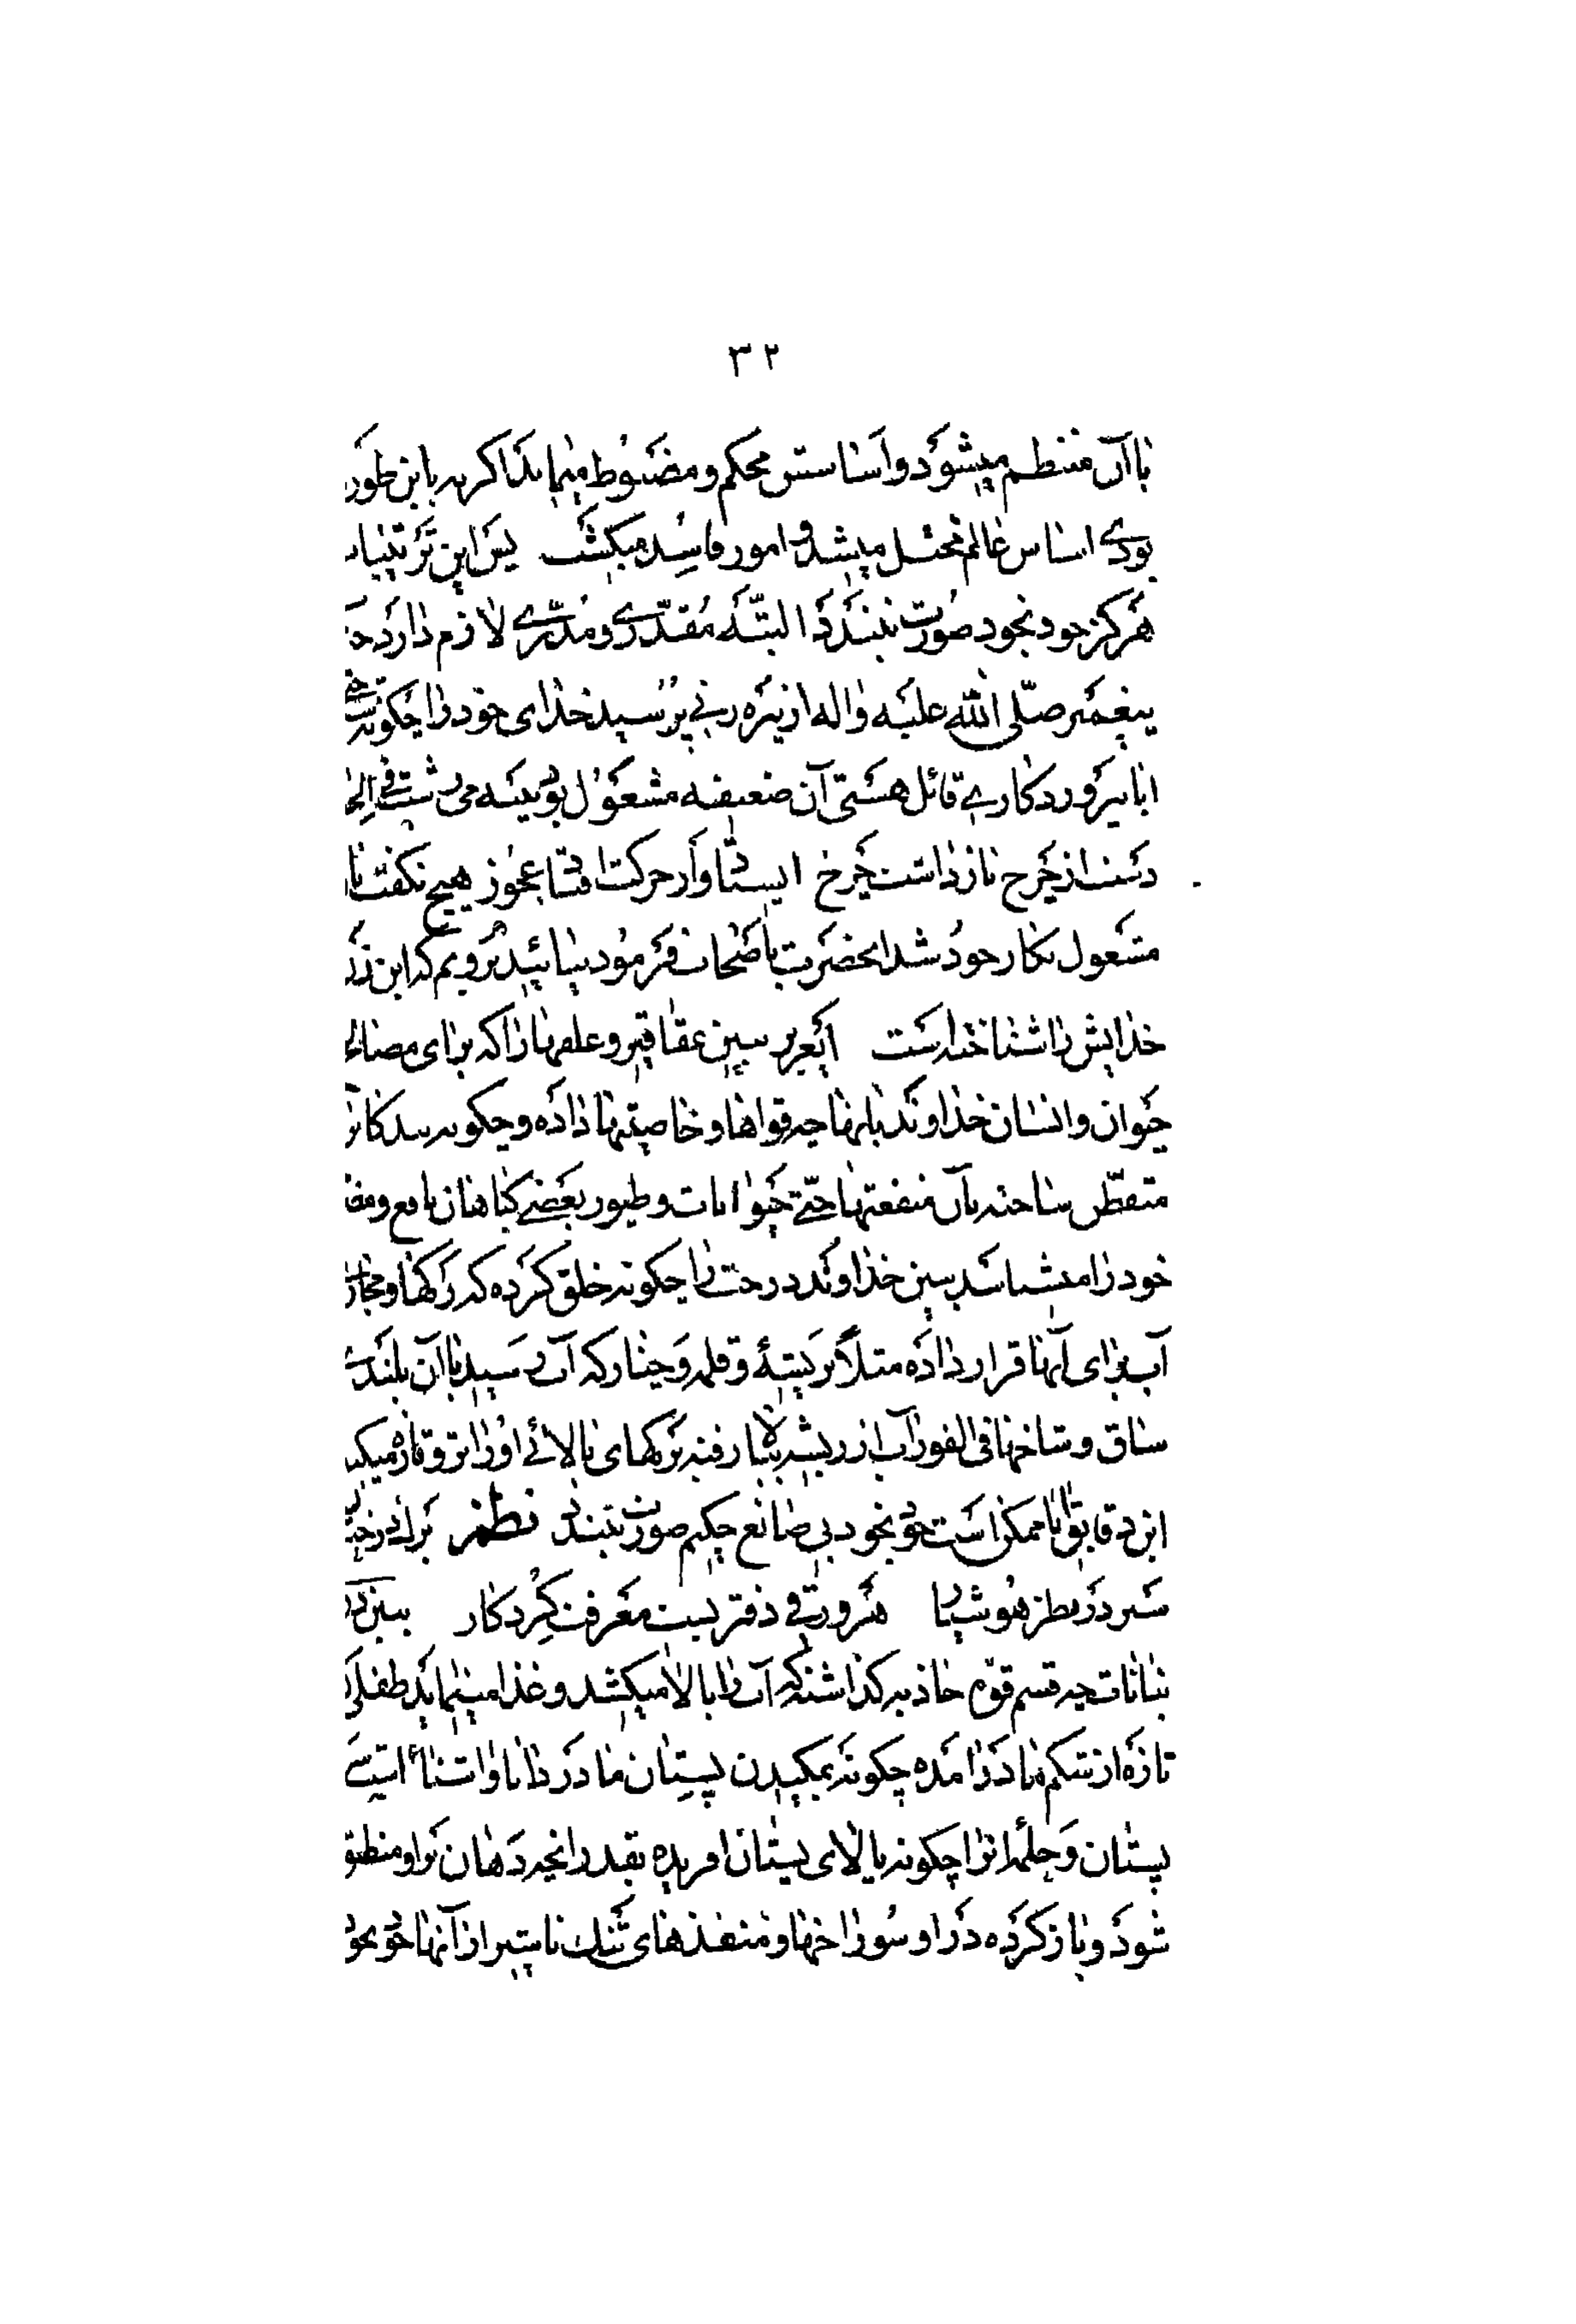 ۳۲
باآن منتظم میشود و اساسش محکم و مضبوط مینماید اگر نه باین طور
بودی اساس عالم مختل میشد و امور فاسد میکشت پس این ترتیبات
هرکز خود بخود صورت نبندد البتّه مقدّری و مدبّری لازم دارد
پیغمبر صلّی الله علیه واله از پیره زنی پرسید خدای خود را چکونه
ایا بپروردکاری قائل هستی آن ضعیفه مشغول بود پنبه می رشت فی الحال
دست از چرخ باز داشت چرخ ایستاد و از حرکت افتاد عجوز هیچ نکفت باز
مشغول بکار خود شد انحضرت باصحاب فرمود بیائید برویم که این زن
خدایش را شناخته است ایعزیز ببین عقاقیر و علفها را که برای مصالح
حیوان و انسان خداوند بانها چه قواها و خاصیتها داده و چکونه بندکانرا
متفطّن ساخته بآن منفعتها حتّی حیوانات و طیور بعضی کیاهان نافع و مضر
خود را میشناسد ببین خداوند درخت را چکونه خلق کرده که رکها و مجاری
آب برای آنها قرار داده مثلا بر پستهٔ و قلمه و چنار که آب رسید باآن بلندی
ساق و شاخها فی الفور آب از ریشه ببالا رفته برکهای بالائی او را تر و تازه میکند
این دقایق ایا ممکن است خود بخود بی صانع حکیم صورت بندد نظم برك درختان
سبز در نظر هوشیار هر ورقی دفتریست معرفت کردکار ببین در
نباتات چه قسم قوّه جاذبه کذاشته که آب را بالا میکشد و غذا مینماید طفلی که
تازه از شکم مادر درامده چکونه بمکیدن پستان مادر دانا و اشنا است
پستان و حلمه انرا چکونه بالای پستان افریده بقدر انچه دهان بر او منطبق
شود و باز کرده در او سوراخها و منفذهای تنك تا شیر از آنها خود بخود